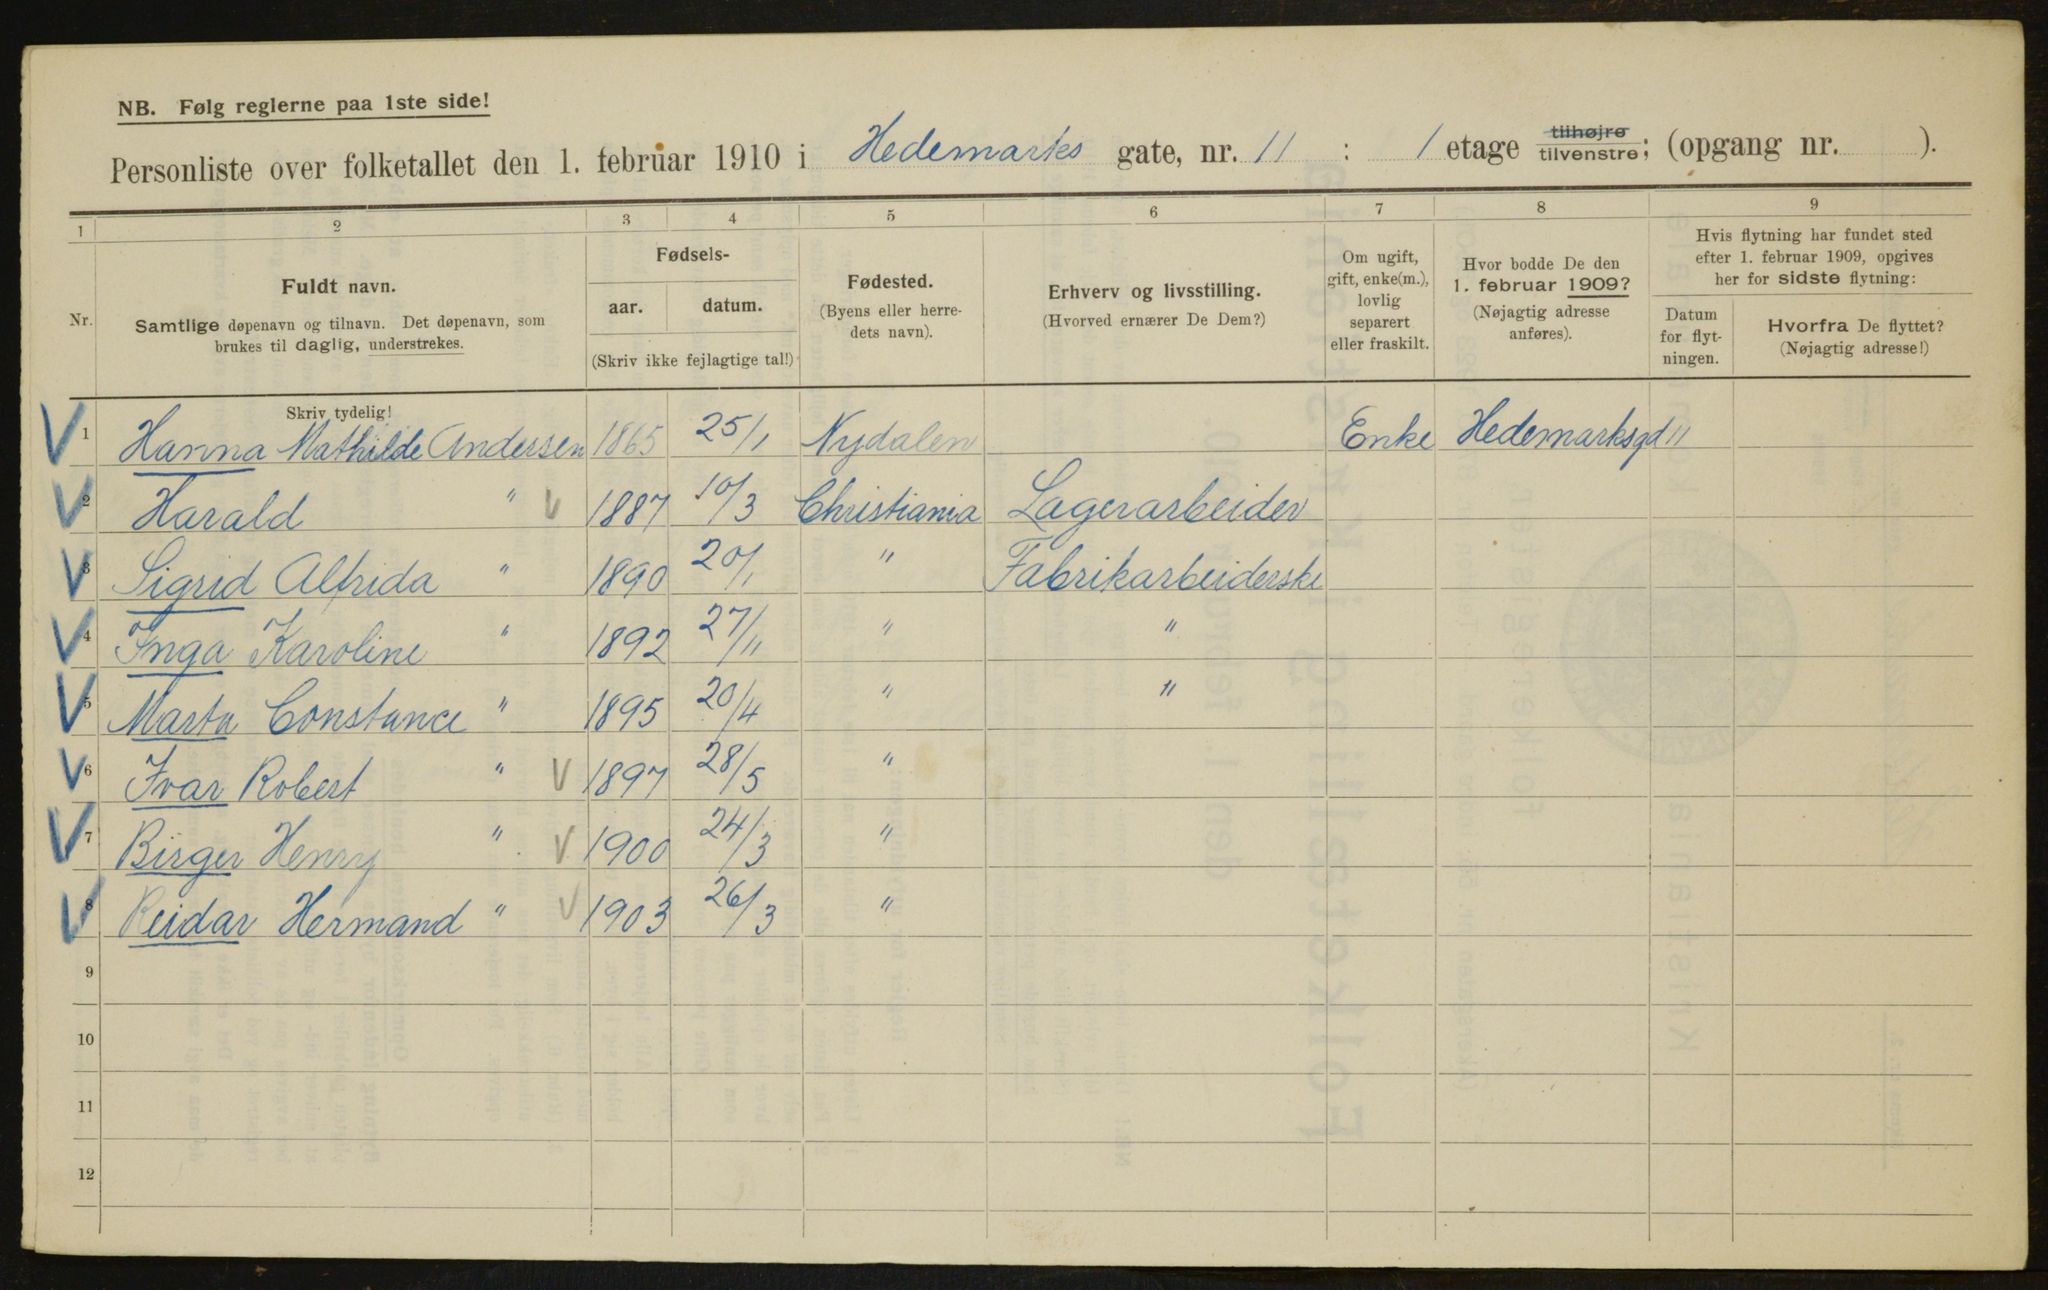 NB. Følg reglerne paa 1ste side!
Personliste over folketallet den 1. februar 1910 i Hedemarks gate, nr. 11 : 1 etage tilhøjre tilvenstre; (opgang nr. ).
1 2 3 4 5 6 7 8 9
Nr.
Fuldt navn.
Samtlige døpenavn og tilnavn. Det døpenavn, som
brukes til daglig, understrekes.
Fødsels-
aar. datum.
(Skriv ikke fejlagtige tal!)
Fødested.
(Byens eller herre-
dets navn).
Erhverv og livsstilling.
(Hvorved ernærer De Dem?)
Om ugift,
gift, enke(m.),
lovlig
separert
eller fraskilt.
Hvor bodde De den
1. februar 1909?
(Nøjagtig adresse
anføres).
Hvis flytning har fundet sted
efter 1. februar 1909, opgives
her for sidste flytning:
Datum
for flyt-
ningen.
Hvorfra De flyttet?
(Nøjagtig adresse!)
Skriv tydelig!
1 Hanna Mathilde Andersen 1865 25/1 Nydalen Enke Hedemarksgd 11
2 Harald " 1887 10/3 Christiania Lagerarbeider
3 Sigrid Alfrida " 1890 20/1 " Fabrikarbeiderske
4 Inga Karoline " 1892 27/11 " "
5 Marta Constance " 1895 20/4 " "
6 Ivar Robert " 1897 28/5 "
7 Birger Henry " 1900 24/3 "
8 Reidar Hermand " 1903 26/3 "
9
10
11
12